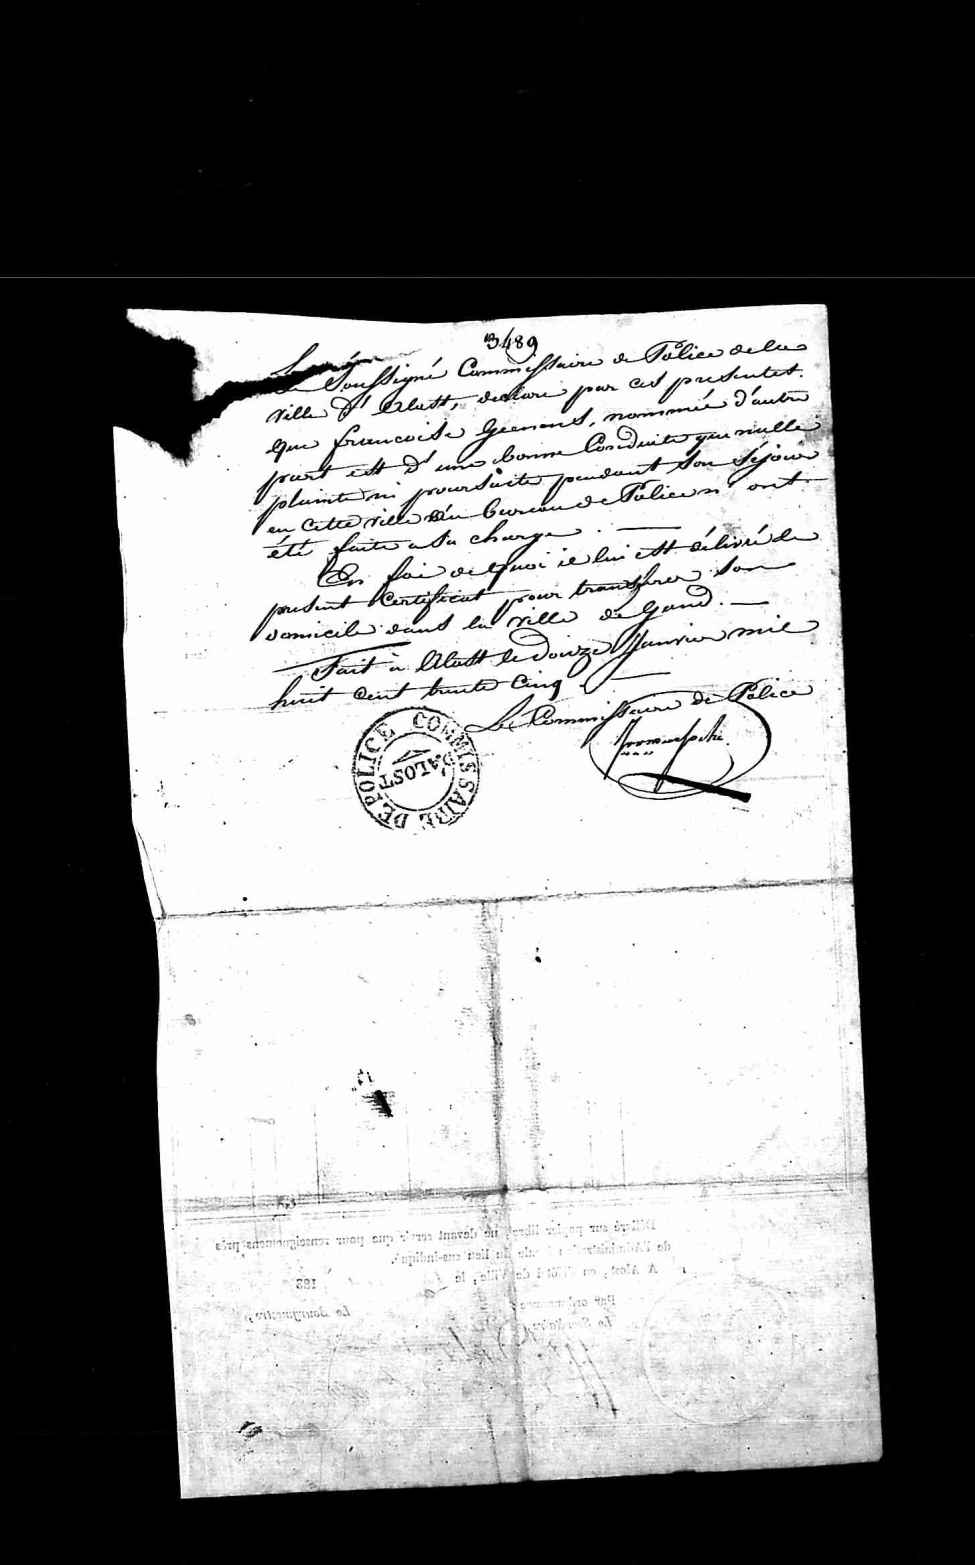 3489
Le Soussigné Commissaire de Police de la
ville d'Alost, declare par ces presentes.
que francoise Geerens, nommée d'autre
part est d'une bonne Conduite que nulle
plainte ni poursuite pendant son séjour
en cette ville au bureau de Police n'ont
été faite a sa charge.
En foi de quoi je lui est délivré le
present Certificat pour transferer son
domicile dans la ville de Gand.
Fait à Alost le douze Janvier mil
huit cent trente Cinq.
Le Commissaire de Police
COMMISSAIRE DE POLICE
D'ALOST
Délivré sur papier libre, ne devant servir que pour renseignemens près
de l'Administration locale du lieu sus-indiqué.
A Alost, en l'Hôtel de Ville, le 183
Par ordonnance:
Le Bourgmestre,
Le Secrétaire,